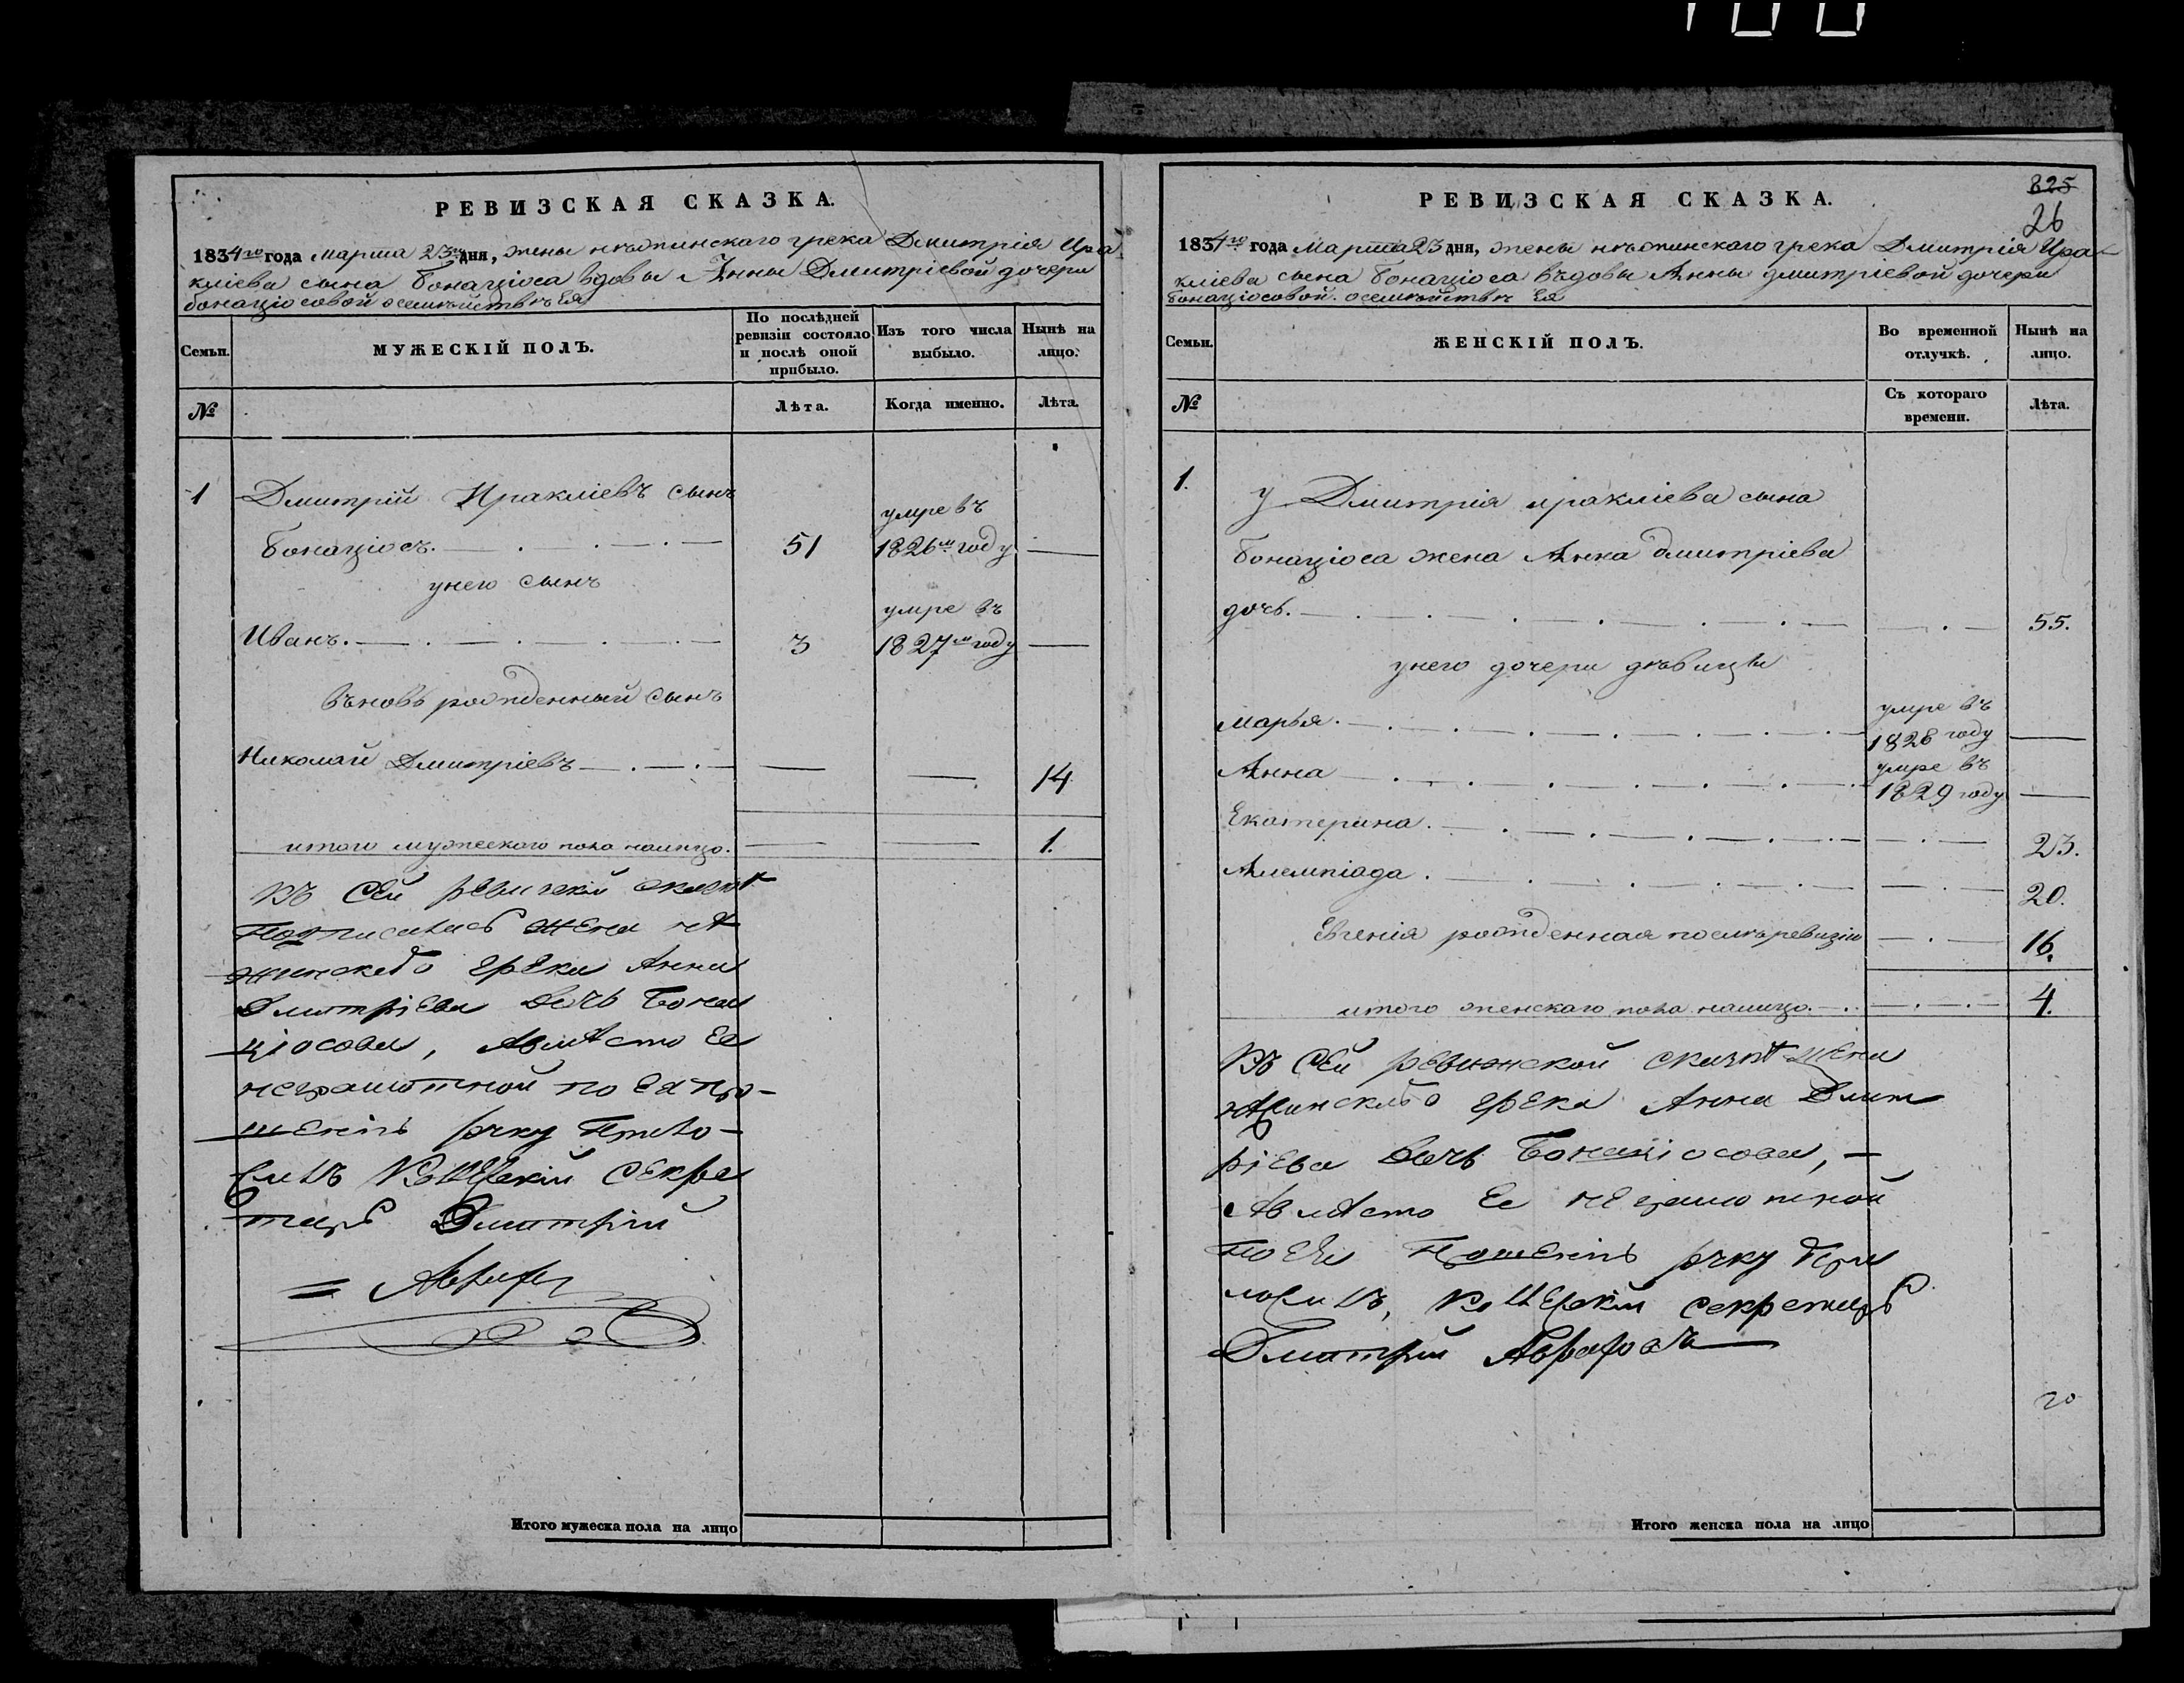 РЕВИЗСКАЯ СКАЗКА.
1834го года марта 23го дня, жены нѣжинскаго грека Дмитрія Ира
кліева сына Бонаціоса вдовы Анны Дмитріевой дочери
бонаціосовой осемѣйствѣ Ея
Семьи.
МУЖЕСКІЙ ПОЛЪ.
По послѣдней ревизіи состояло и послѣ оной прибыло.
Изъ того числа выбыло.
Нынѣ на лицо.
№
Лѣта.
Когда именно.
Лѣта.
1 Дмитрій Иракліевъ сынъ
Бонаціосъ. 51 умре въ 1826м году —
унего сынъ
Иванъ. 3 умре въ 1827м году —
въновь рожденный сынъ
Николай Дмитріевъ — — 14
итого мужескаго пола налицо. — — 1.
Къ сей ревизкой сказкѣ
подписалась жена нѣ
жинскаго грека Анна
Дмитріева дочь Бона
ціосова, Авмѣсто Ее
неграмотной по Ея про-
шенію руку прило-
жилъ Колежскій Секре
тарь Дмитрій
=
Итого мужеска пола на лицо
РЕВИЗСКАЯ СКАЗКА.
825
26
1834го года Марта 23 дня, жены нѣжинскаго грека Дмитрія Ира-
кліева сына Бонаціоса въдовы Анны дмитріевой дочери
Бонаціосовой. осемѣйствѣ Ея
Семьи.
ЖЕНСКІЙ ПОЛЪ.
Во временной отлучкѣ.
Нынѣ на лицо.
№
Съ котораго времени.
Лѣта.
1. у Дмитрія иракліева сына
Бонаціоса жена Анна дмитріева
дочь. 55.
унего дочери дѣвицы
Марья. умре въ 1828 году —
Анна умре въ 1829 году —
Екатерина. 23.
Алемпіада. 20.
Евгенія рожденная послѣ ревизіи 16.
итого женскаго пола налицо. 4.
Къ сей ревижской сказкѣ жена
нѣжинскаго грека Анна Дмит
ріева дочь Бонаціосова, —
Авмѣсто Ее неграмотной
по Ея прошенію руку при
ложилъ, Колежскій секретарь
Дмитрій
20
Итого женска пола на лицо